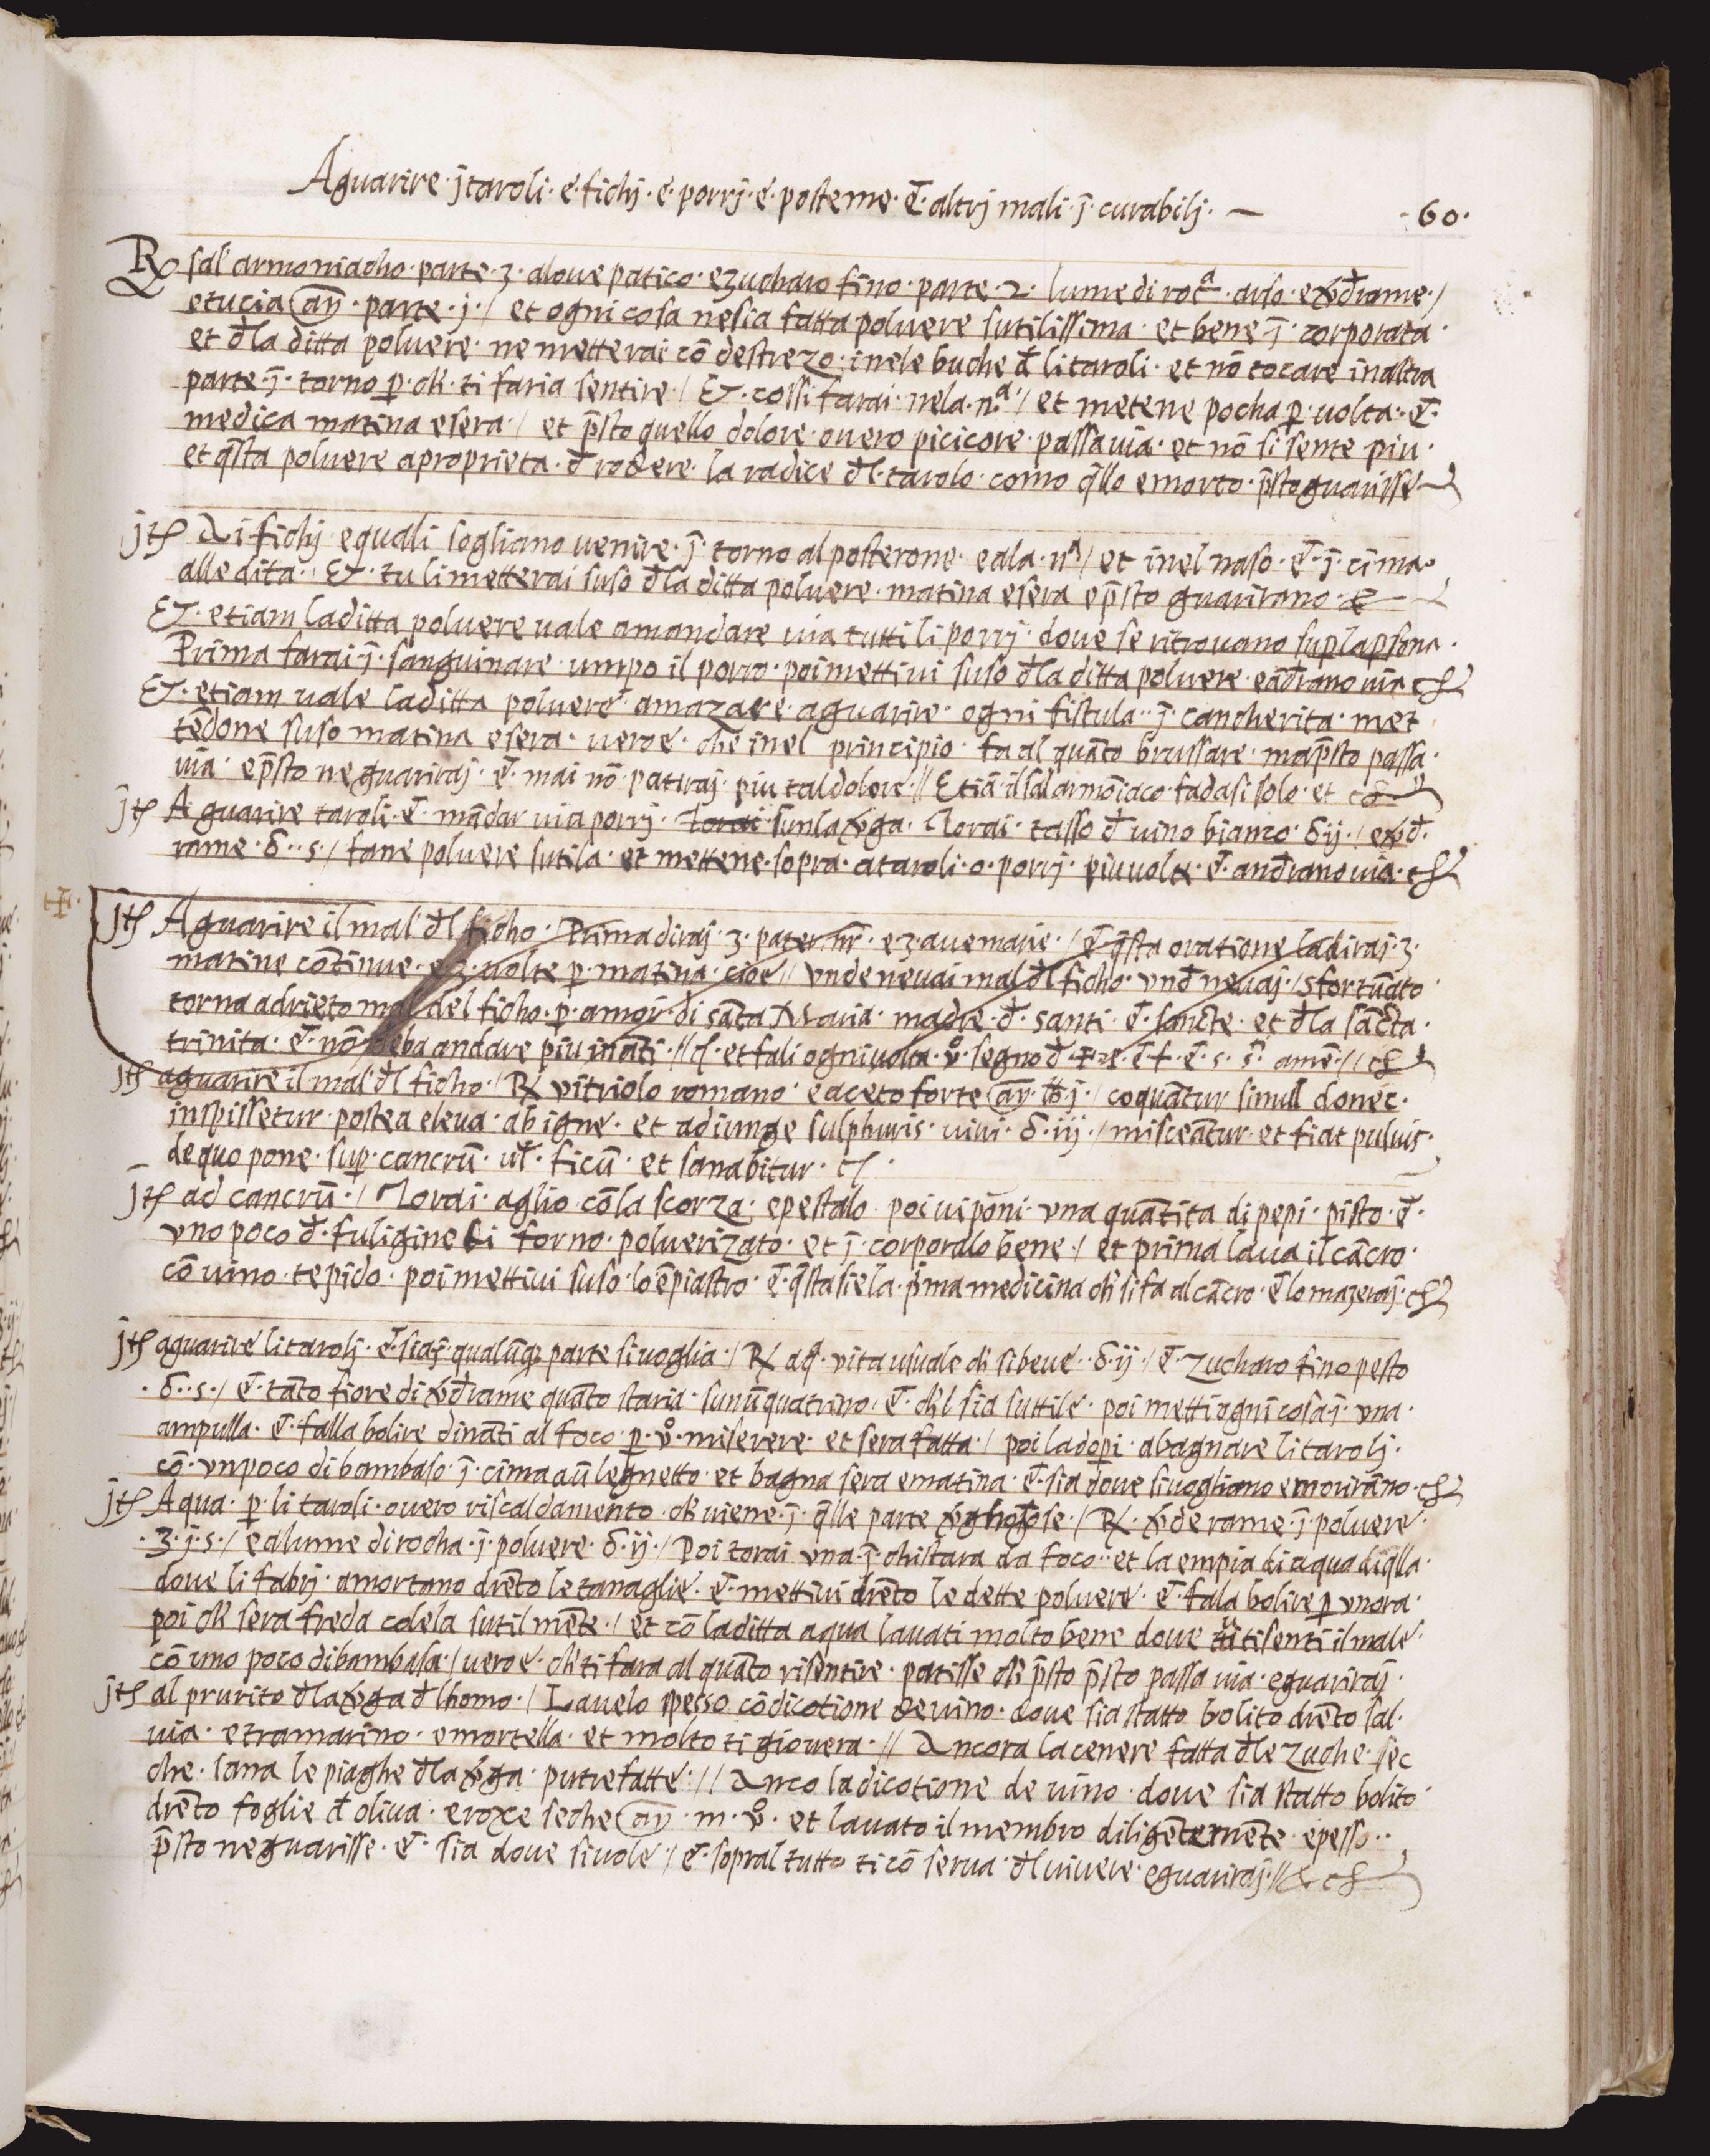 Aguarire · jtaroli · e · fichj · e · porrj · e · posteme · ē · altrj mali · j̄ · curabilj · —
· 60 ·
R sal armoniacho · parte · 3 · aloue patico · ezucharo fino · parte · 2 · lume di rocᵃ · arso · e xđrame · /
etucia añ · parte · j · / et ogni cosa nesia fatta poluere sutilissima · et bene j̄ · corporata ·
et đla ditta poluere · ne metterai cō destrezo · inele buche đ li taroli · et nō tocare in altra
parte · j̄ · torno p̱ · ch̄ · ti faria sentire · / Et · cossi farai · nela · n.ᵃ / et metene pocha p̱ · uolta · ē ·
medica matina esera · / et p̄sto quello dolore · ouero picicore · passa uia · et nō si sente piu ·
et q̄sta poluere aproprieta · đ rodere · la radice đl · tarolo · como q̄llo emorto · p̄sto guarisse
jtȝ Ai fichj equali sogliano uenire · j̄ · torno al posterone · eala · nᵃ / et inel naso · ē · j̄ · cima ·
alle dita · Et · tu li metterai suso đla ditta poluere · matina esera ep̄sto guarirano · &
Et · etiam la ditta poluere uale amandare uia tutti li porrj · doue se ritrouano sup̱ la p̱sona ·
Prima farai · j̄ · sanguinare · umpo il porro · poi mettiui suso đla ditta poluere · eāđrano uia
Et · etiam uale la ditta poluere · amazare · aguarire · ogni fistula · j̄ · cancherita · met
tēdone suso matina esera · uero e · che inel principio · fa al quāto brussare · ma p̄sto passa ·
uia · ep̄sto ne guariraj · ē · mai nō · patiraj · piu tal dolore · // Etiā · il sal armōiaco · fa da si solo · et
jtȝ A guarire taroli · ē · mādar uia porrj · Torai sun la x̄ga · Torai · tasso đ uino bianco · δ ij · / exđ ·
rame · δ · s · / fane poluere sutila · et mettene · sopra · ataroli · o · porrj · piu uolte · ē · anđrano uia ·
jtȝ Aguarire il mal đl ficho · / Prima diraj · 3 · pater nr̄ · e 3 · aue marie · / ē q̄sta oratione la diraj · 3 ·
matine cōtinue · e 3 · uolte p̱ · matina · cioe // vnde ne uai mal đl ficho · vnđ ne uaj · / sfortūato ·
torna adrieto mal del ficho · p̱ · amor · di sāta Maria · madre · đ · santi · ē · sancte · et đla sācta ·
trinita · ē · nō deba andare piu inati · // et fali ogni uolta · v̊ · segno đ · amē · //
jtȝ aguarire il mal đl ficho · / R vitriolo romano · e aceto forte añ · lb · j · / coquātur simull donec ·
inspissetur · postea eleua · ab igne · et adiunge sulphuris · uiui · δ · iij · / misceātur · et fiat puluis ·
de quo pone · sup̱ · cancrū · ul̄ · ficū · et sanabitur ·
jtȝ ad cancrū · / Torai · aglio · cō la scorza · epestalo · poi ui poni · vna quātita di pepi · pisto · ē ·
vno poco đ · fuligine di forno · poluerizato · et j̄ · corporalo bene · / et prima laua il cācro ·
cō uino · tepido · poi mettiui suso · lo ēpiastro · ē · q̄sta sie la · p̄ma medicina ch̄ si fa al cācro · ē lo mazeraj ·
jtȝ aguarire li tarolj · ē · sia j̄ · qualūq; parte si uoglia · / R aqᵃ · vita usuale ch̄ si beue · δ · ij · / ē · zucharo fino pesto
· δ · s · / ē · tāto fiore di xđrame quāto staria · sun ū quatrino · ē · ch̄l sia suttile · poi metti ogni cosa j̄ · vna ·
ampulla · ē · falla bolire dināti al foco · p̱ · v̊ · miserere · et sera fatta · / poi la dopi · abagnare li tarolj ·
cō · vn poco di bambaso · j̄ · cima aū legnetto · et bagna sera ematina · ē · sia doue si uogliano emorirāno ·
jtȝ Aqua · p̱ · li taroli · ouero riscaldamento · ch̄ uiene · j̄ · q̄lle parte x̄ghognose · / R · x̄de rame · j̄ · poluere ·
· 3 · j · s · / ealume di rocha · j̄ · poluere · δ · ij · / Poi torai vna · j̄ · chistara da foco · et la empia di aqua di q̄lla ·
doue li fabrj · amortano drēto le tanaglie · ē · mettiui drēto le dette poluere · ē · fala bolire p̱ vnora ·
poi ch̄ sera freda colela sutilmēte · / et cō la ditta aqua lauati molto bene doue tu ti senti il male ·
cō uno poco di bambasa · / uero e · ch̄ ti fara al quāto risentire · patisse ch̄ p̄sto p̄sto passa uia · eguariraj ·
jtȝ al prurito đla x̄ga đlhomo · / Lauelo spesso cō dicotione de uino · doue sia statto bolito drēto sal ·
uia · etramarino · emortella · et molto ti giouera · // Ancora la cenere fatta đle zuche · sec
che · sana le piaghe đla x̄ga · putrefatte · // Anco la dicotione de uino · doue sia statto bolito ·
drēto foglie đ oliua · eroxe seche añ · m · v̊ · et lauato il membro diligētemēte · epesso ·
p̄sto ne guarisse · ē · sia doue si uole · / ē · sopral tutto ti cō serua · đl uiuere · eguariraj · //